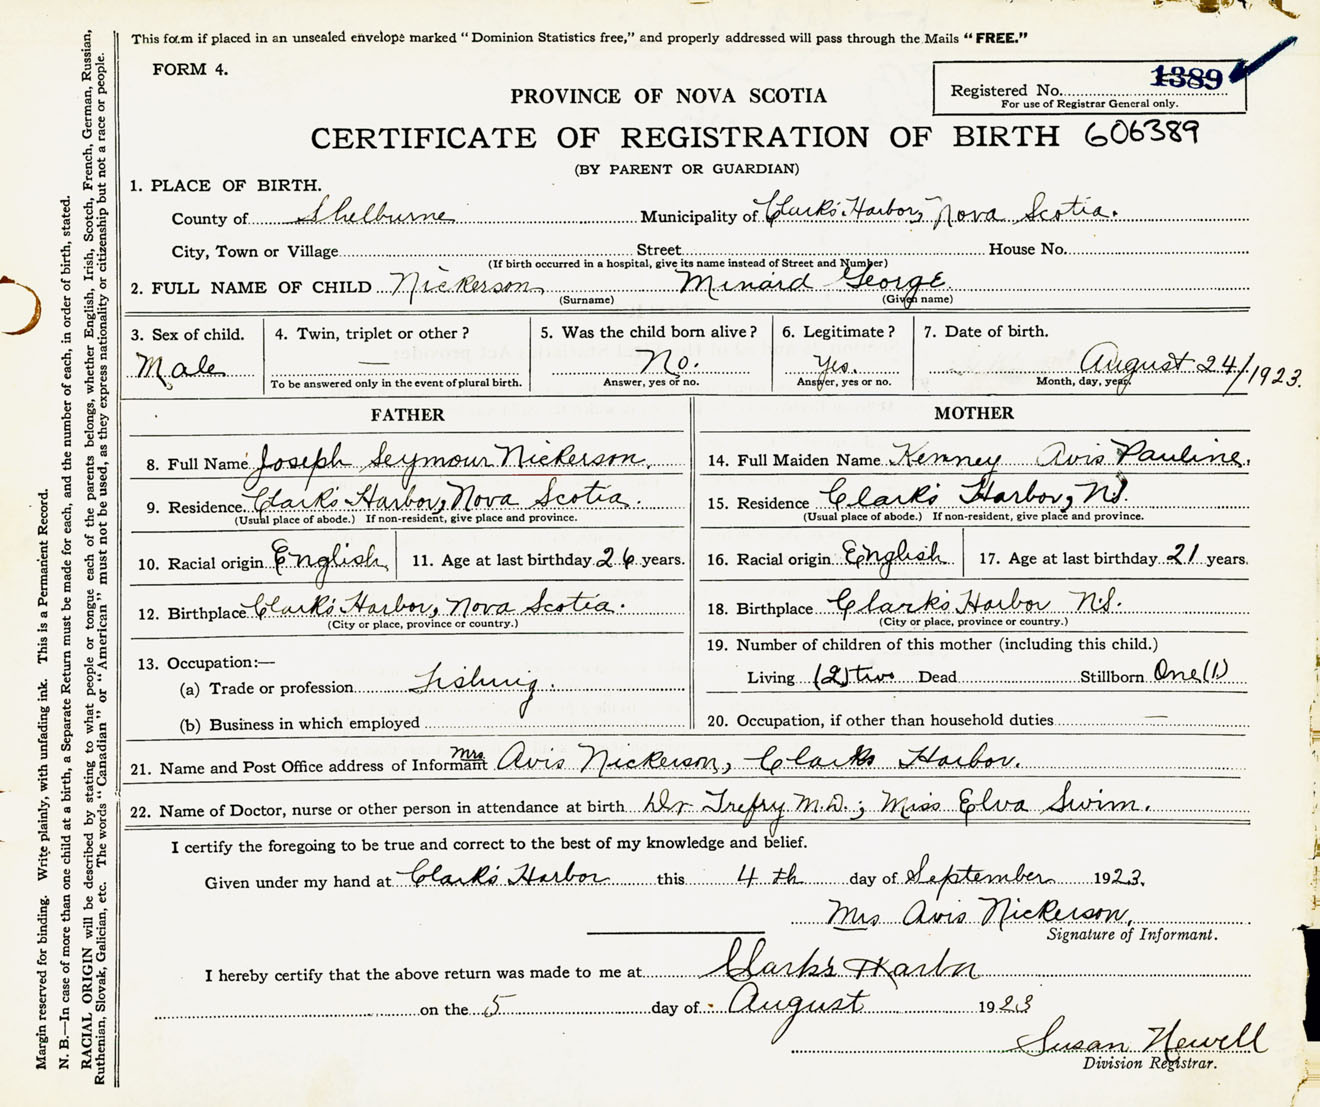 This form if placed in an unsealed envelope marked "Dominion Statistics free," and properly addressed will pass through the Mails "FREE."
FORM 4.
Registered No. 1389
For use of Registrar General only.
PROVINCE OF NOVA SCOTIA
CERTIFICATE OF REGISTRATION OF BIRTH 606389
(BY PARENT OR GUARDIAN)
1. PLACE OF BIRTH.
County of Shelburne Municipality of Clark's Harbor, Nova Scotia.
City, Town or Village Street House No.
(If birth occurred in a hospital, give its name instead of Street and Number)
2. FULL NAME OF CHILD Nickerson, Minard George.
(Surname) (Given name)
3. Sex of child. 4. Twin, triplet or other? 5. Was the child born alive? 6. Legitimate? 7. Date of birth.
Male — No. Yes. August 24/1923.
To be answered only in the event of plural birth. Answer, yes or no. Answer, yes or no. Month, day, year.
FATHER
8. Full Name Joseph Seymour Nickerson.
9. Residence Clark's Harbor, Nova Scotia.
(Usual place of abode.) If non-resident, give place and province.
10. Racial origin English 11. Age at last birthday 26 years.
12. Birthplace Clark's Harbor, Nova Scotia.
(City or place, province or country.)
13. Occupation:—
(a) Trade or profession Fishing.
(b) Business in which employed
MOTHER
14. Full Maiden Name Kenney Avis Pauline.
15. Residence Clark's Harbor, N.S.
(Usual place of abode.) If non-resident, give place and province.
16. Racial origin English 17. Age at last birthday 21 years.
18. Birthplace Clark's Harbor N.S.
(City or place, province or country.)
19. Number of children of this mother (including this child.)
Living (2) two Dead Stillborn One (1)
20. Occupation, if other than household duties —
21. Name and Post Office address of Informant Mrs. Avis Nickerson, Clarks Harbor.
22. Name of Doctor, nurse or other person in attendance at birth Dr Trefry M.D.; Miss Elva Swim.
I certify the foregoing to be true and correct to the best of my knowledge and belief.
Given under my hand at Clark's Harbor this 4 th day of September 1923.
Mrs Avis Nickerson,
Signature of Informant.
I hereby certify that the above return was made to me at Clark's Harbor
on the 5 day of August 1923
Susan Newell
Division Registrar.
Margin reserved for binding. Write plainly, with unfading ink. This is a Permanent Record.
N. B.—In case of more than one child at a birth, a Separate Return must be made for each, and the number of each, in order of birth, stated.
RACIAL ORIGIN will be described by stating to what people or tongue each of the parents belongs, whether English, Irish, Scotch, French, German, Russian,
Ruthenian, Slovak, Galician, etc. The words "Canadian" or "American" must not be used, as they express nationality or citizenship but not a race or people.